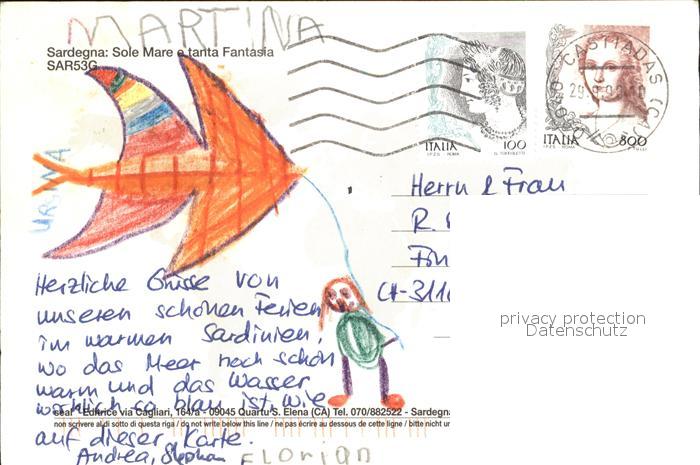 MARTINA
Sardegna: Sole Mare e tanta Fantasia
SAR53G
URSINA
ITALIA 100
ITALIA 800
CASTIADAS (CA)
Herrn & Frau
R.
CH-311
privacy protection
Datenschutz
Herzliche Grüsse von
unseren schönen Ferien
im warmen Sardinien,
wo das Meer noch schön
warm und das Wasser
wirklich so blau ist, wie
auf dieser Karte.
Andrea, Stephan FLORian
Editrice via Cagliari, 164/a - 09045 Quartu S. Elena (CA) Tel. 070/882522 - Sardegna
non scrivere al di sotto di questa riga / do not write below this line / ne pas écrire au dessous de cette ligne / bitte nicht un